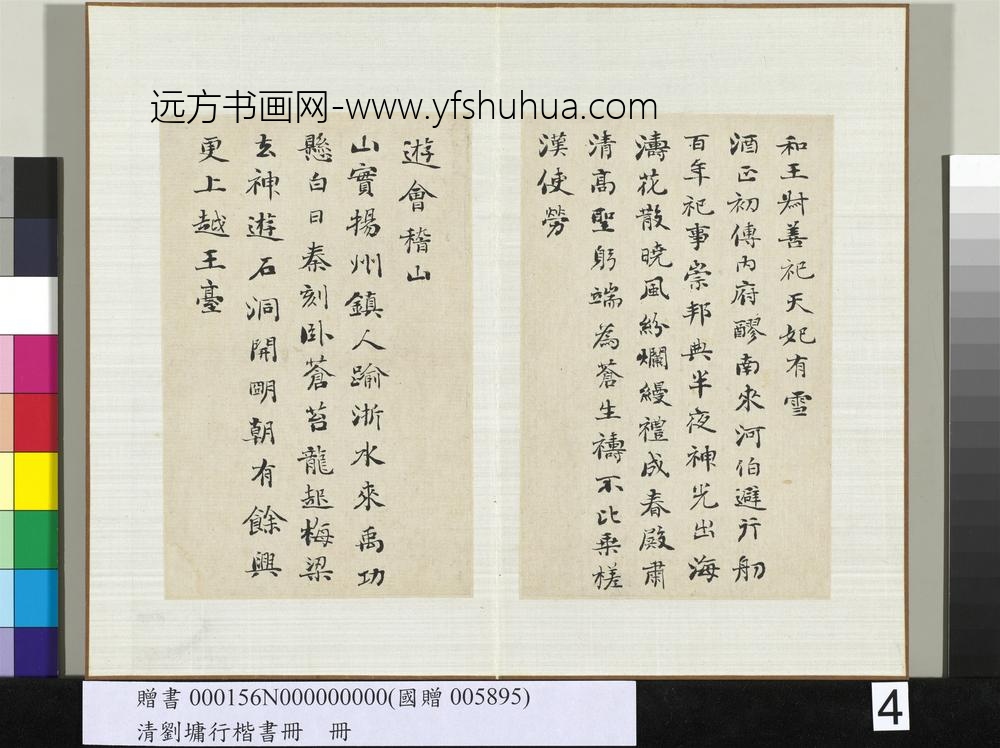 远方书画网-www.yfshuhua.com
和王尉善祀天妃有雪
酒正初傳內府醪南來河伯避行舠
百年祀事崇邦典半夜神光出海
濤花散曉風紛爛縵禮成春殿肅
清高聖躬端為蒼生禱不比乘槎
漢使勞
遊會稽山
山實揚州鎮人踰浙水來禹功
懸白日秦刻臥蒼苔龍起梅梁
去神遊石洞開明朝有餘興
更上越王臺
贈書 000156N000000000(國贈 005895)
清劉墉行楷書冊 冊
4